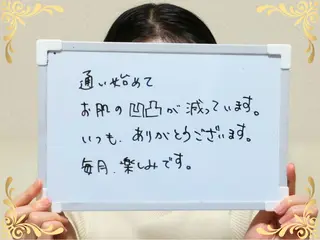 通い始めて
お肌の凹凸が減っています。
いつも、ありがとうございます。
毎月、楽しみです。